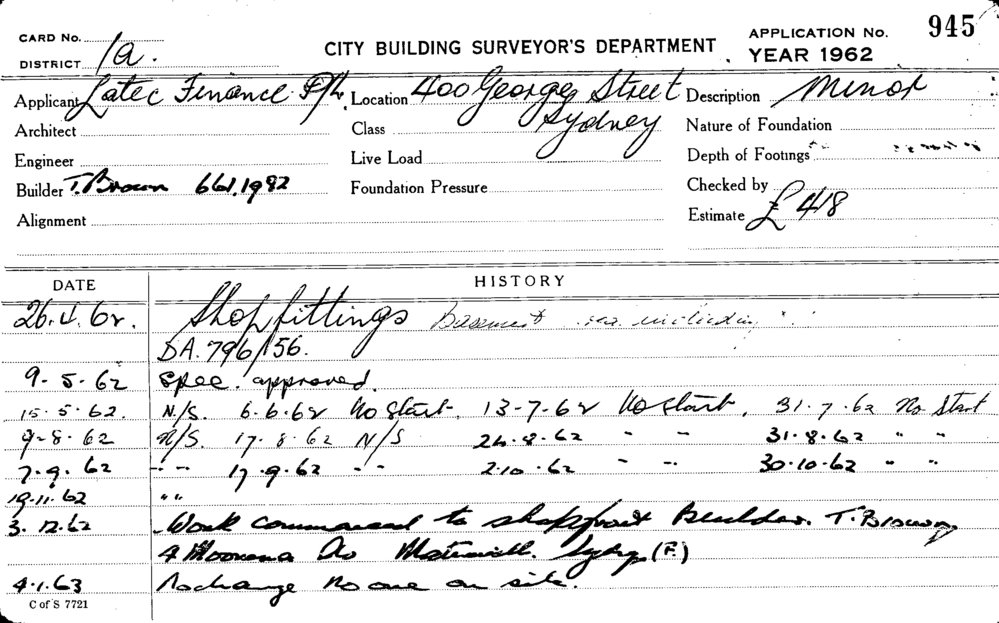 CARD No.
DISTRICT 1a.
CITY BUILDING SURVEYOR'S DEPARTMENT
APPLICATION No. 945
YEAR 1962
Applicant Latec Finance P/L. Location 400 George Street Sydney Description Minor
Architect Class Nature of Foundation
Engineer Live Load Depth of Footings
Builder T. Brown 661,1982 Foundation Pressure Checked by
Alignment Estimate £ 418
DATE HISTORY
26.4.62. Shopfittings Basement including
DA. 796/56.
9-5-62 Spec. approved.
15.5.62. N/S. 6.6.62 No Start. 13-7-62 No start. 31.7.62 No Start
9-8-62 N/S. 17.8.62 N/S 24.8.62 " " 31.8.62 " "
7.9.62 " " 17.9.62 " " 2.10.62 " " 30.10.62 " "
19.11.62 " "
3.12.62 Work commenced to shopfront Builder. T. Brown,
4 Av Sydney (F.)
4.1.63 No change No one on site.
C of S 7721